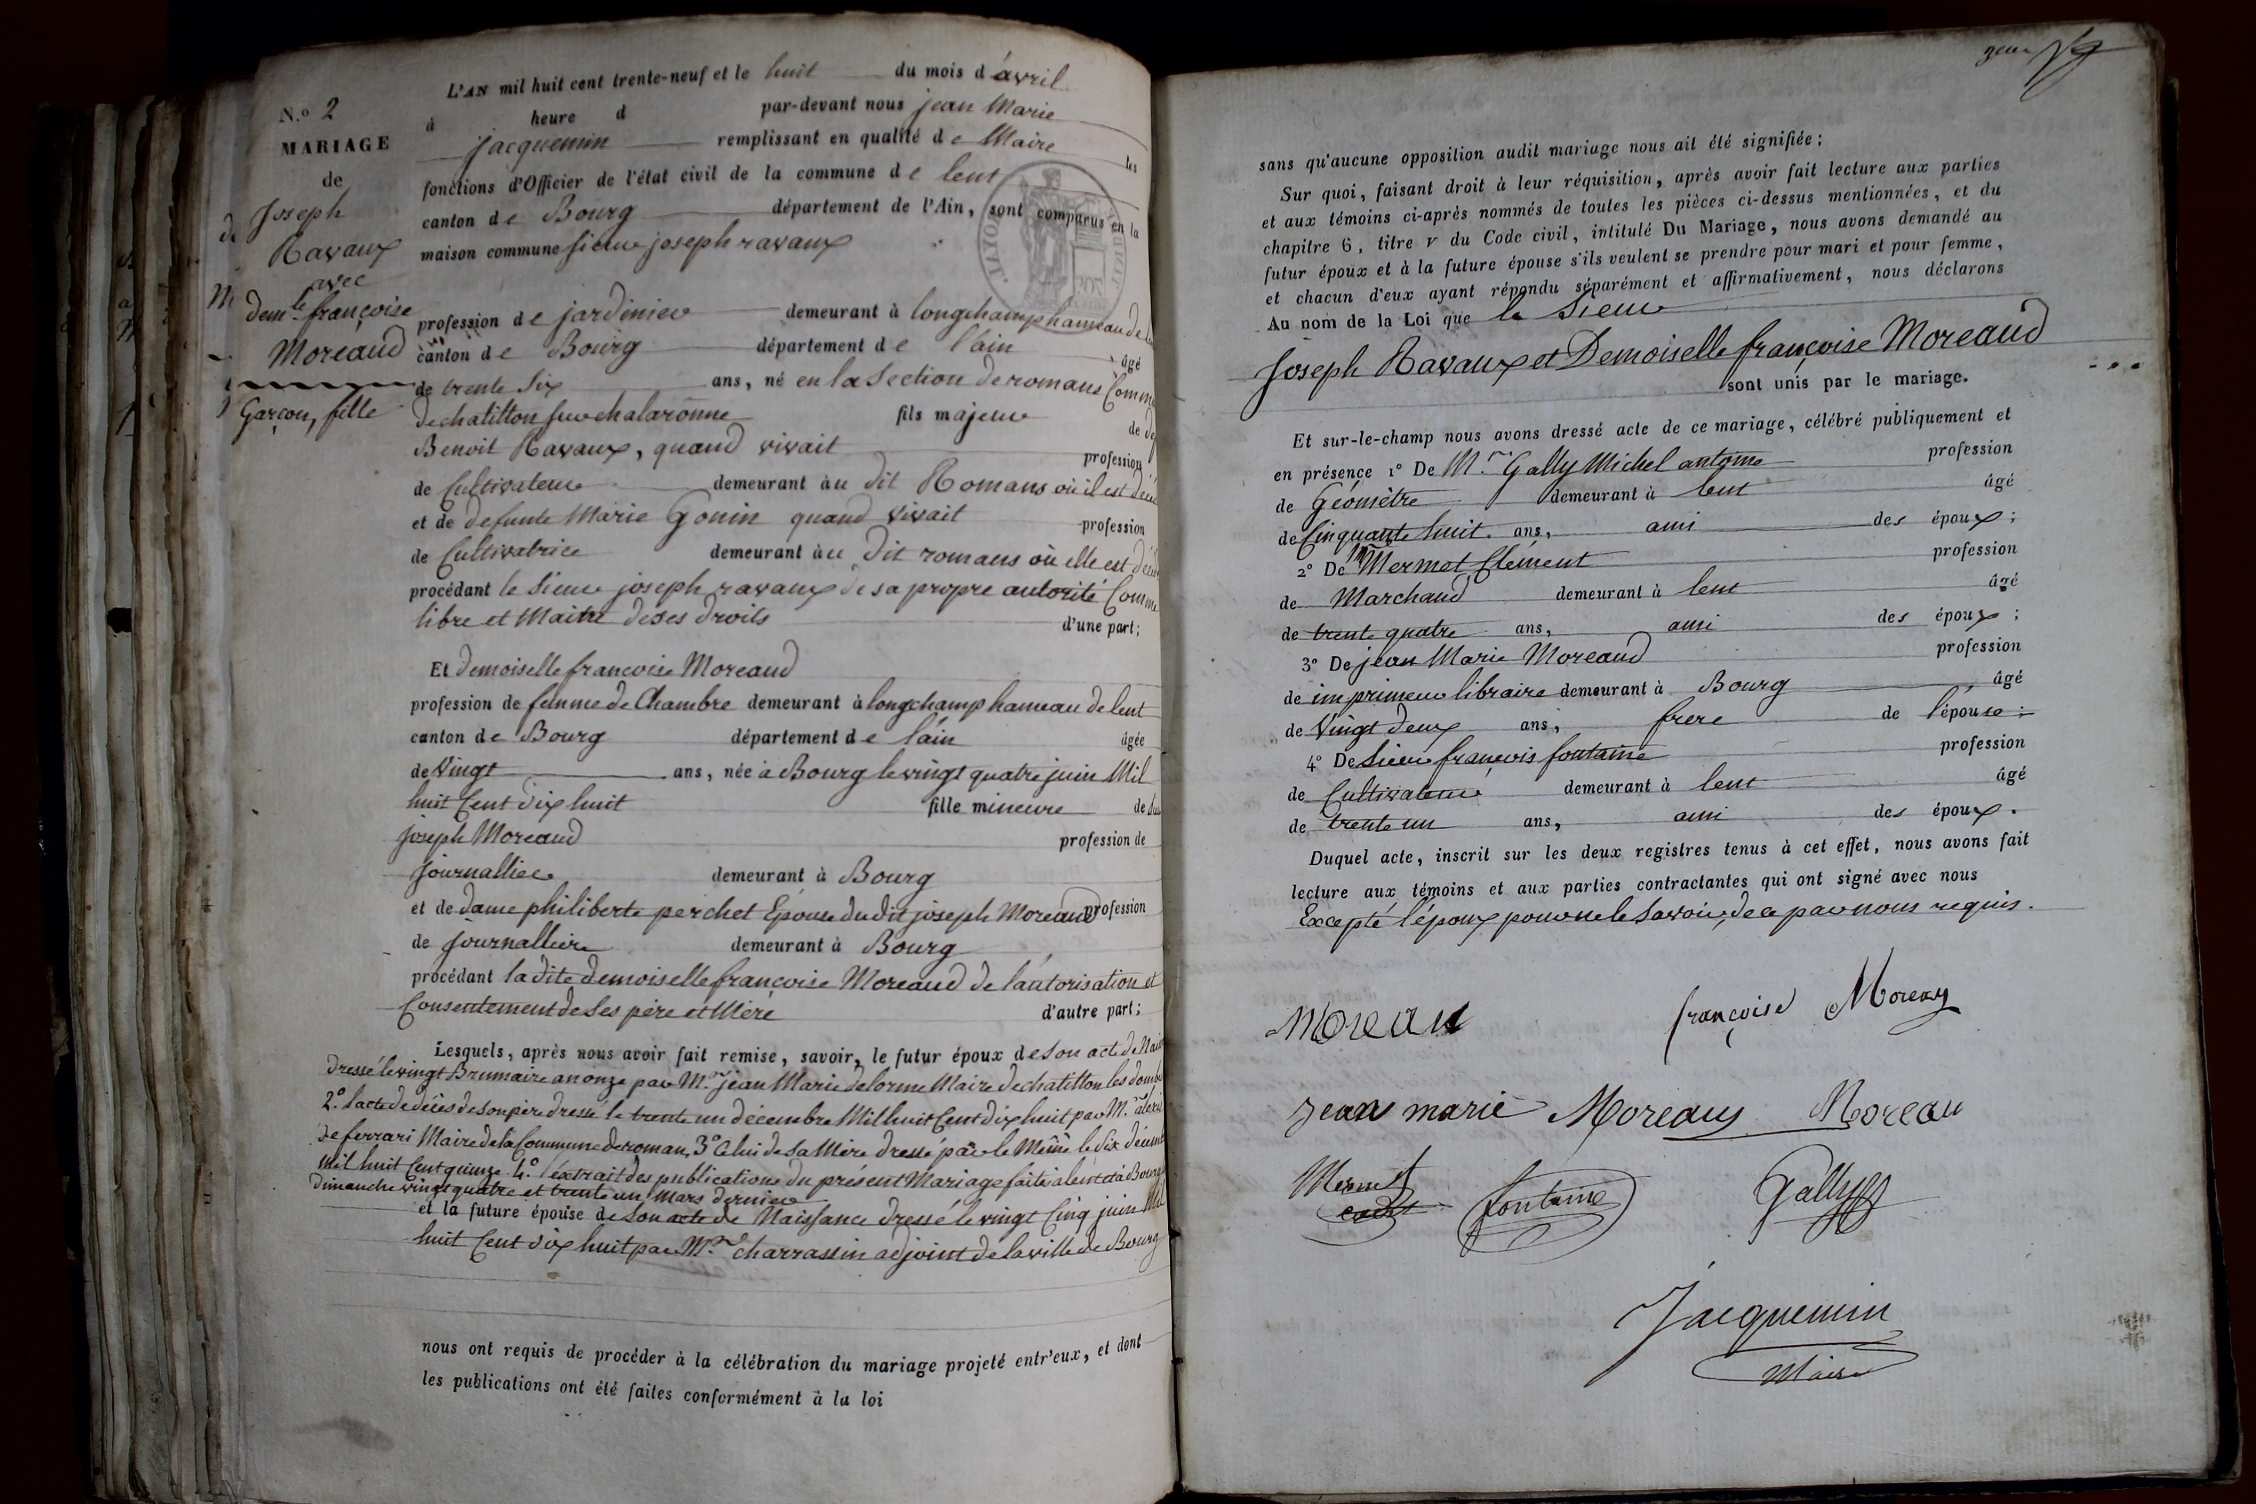 N.o 2
MARIAGE
de
Joseph
Ravaux
avec
demlle françoise
Moreaud
Garçon, fille
L'AN mil huit cent trente-neuf et le huit du mois d'avril
à heure d par-devant nous jean Marie
jacquemin remplissant en qualité de Maire les
fonctions d'Officier de l'état civil de la commune de lent
canton de Bourg département de l'Ain, sont comparus en la
maison commune sieur joseph ravaux
profession de jardinier demeurant à longchamp hameau de
canton de Bourg département de l'ain âgé
de trente six ans, né en la Section de romans
de chatillon sur chalaronne fils majeur de
Benoit Ravaux, quand vivait profession
de Cultivateur demeurant àu dit Romans où il est
et de defunte Marie Gonin quand vivait profession
de Cultivatrice demeurant àu dit romans où elle est
procédant le Sieur joseph ravaux de sa propre autorité Comme
libre et Maitre de ses droits d'une part;
Et demoiselle françoise Moreaud
profession de femme de Chambre demeurant à longchamp hameau de lent
canton de Bourg département de l'ain âgée
de Vingt ans, née à Bourg le vingt quatre juin Mil
huit Cent dix huit fille mineure de
joseph Moreaud profession de
journallier demeurant à Bourg
et de dame philiberte perchet Epouse du dit joseph Moreaud profession
de journallière demeurant à Bourg
procédant la dite demoiselle françoise Moreaud de l'autorisation et
Consentement de Ses père et Mère d'autre part;
Lesquels, après nous avoir fait remise, savoir, le futur époux de son acte de
dressé le vingt Brumaire an onze par Mr jean Marie delorme Maire de chatillon les
2.o l'acte de décès de son père dressé le trente un décembre Mil huit Cent dix huit par Mr
de ferrari Maire de la Commune de roman, 3o Celui de sa Mère dressé par le Même le Six
Mil huit Cent quinze. 4.o l'extrait des publications du présent Mariage faits à lent et à Bourg
dimanche vingt quatre et trente un Mars dernier
et la future épouse de Son acte de Naissance dressé le vingt Cinq juin Mil
huit Cent dix huit par Mr charrassin adjoint de la ville de Bourg
nous ont requis de procéder à la célébration du mariage projeté entr'eux, et dont
les publications ont été faites conformément à la loi
sans qu'aucune opposition audit mariage nous ait été signifiée;
Sur quoi, faisant droit à leur réquisition, après avoir fait lecture aux parties
et aux témoins ci-après nommés de toutes les pièces ci-dessus mentionnées, et du
chapitre 6, titre v du Code civil, intitulé Du Mariage, nous avons demandé au
futur époux et à la future épouse s'ils veulent se prendre pour mari et pour femme,
et chacun d'eux ayant répondu séparément et affirmativement, nous déclarons
Au nom de la Loi que le Sieur
Joseph Ravaux et Demoiselle françoise Moreaud
sont unis par le mariage.
Et sur-le-champ nous avons dressé acte de ce mariage, célébré publiquement et
en présence 1o De Mr Gally Michel antoine profession
de Géomètre demeurant à lent âgé
de Cinquante huit ans, ami des époux;
2o De Mr Mermet Clément profession
de Marchand demeurant à lent âgé
de trente quatre ans, ami des époux;
3o De jean Marie Moreaud profession
de imprimeur libraire demeurant à Bourg âgé
de Vingt deux ans, frere de l'épouse;
4o De Sieur françois fontaine profession
de Cultivateur demeurant à lent âgé
de trente un ans, ami des époux.
Duquel acte, inscrit sur les deux registres tenus à cet effet, nous avons fait
lecture aux témoins et aux parties contractantes qui ont signé avec nous
Excepté l'époux pour ne le Savoir, de ce par nous requis.
Moreau françoise Moreau
jean marie Moreau Moreau
Mermet fontaine Gally
Jacquemin
Maire